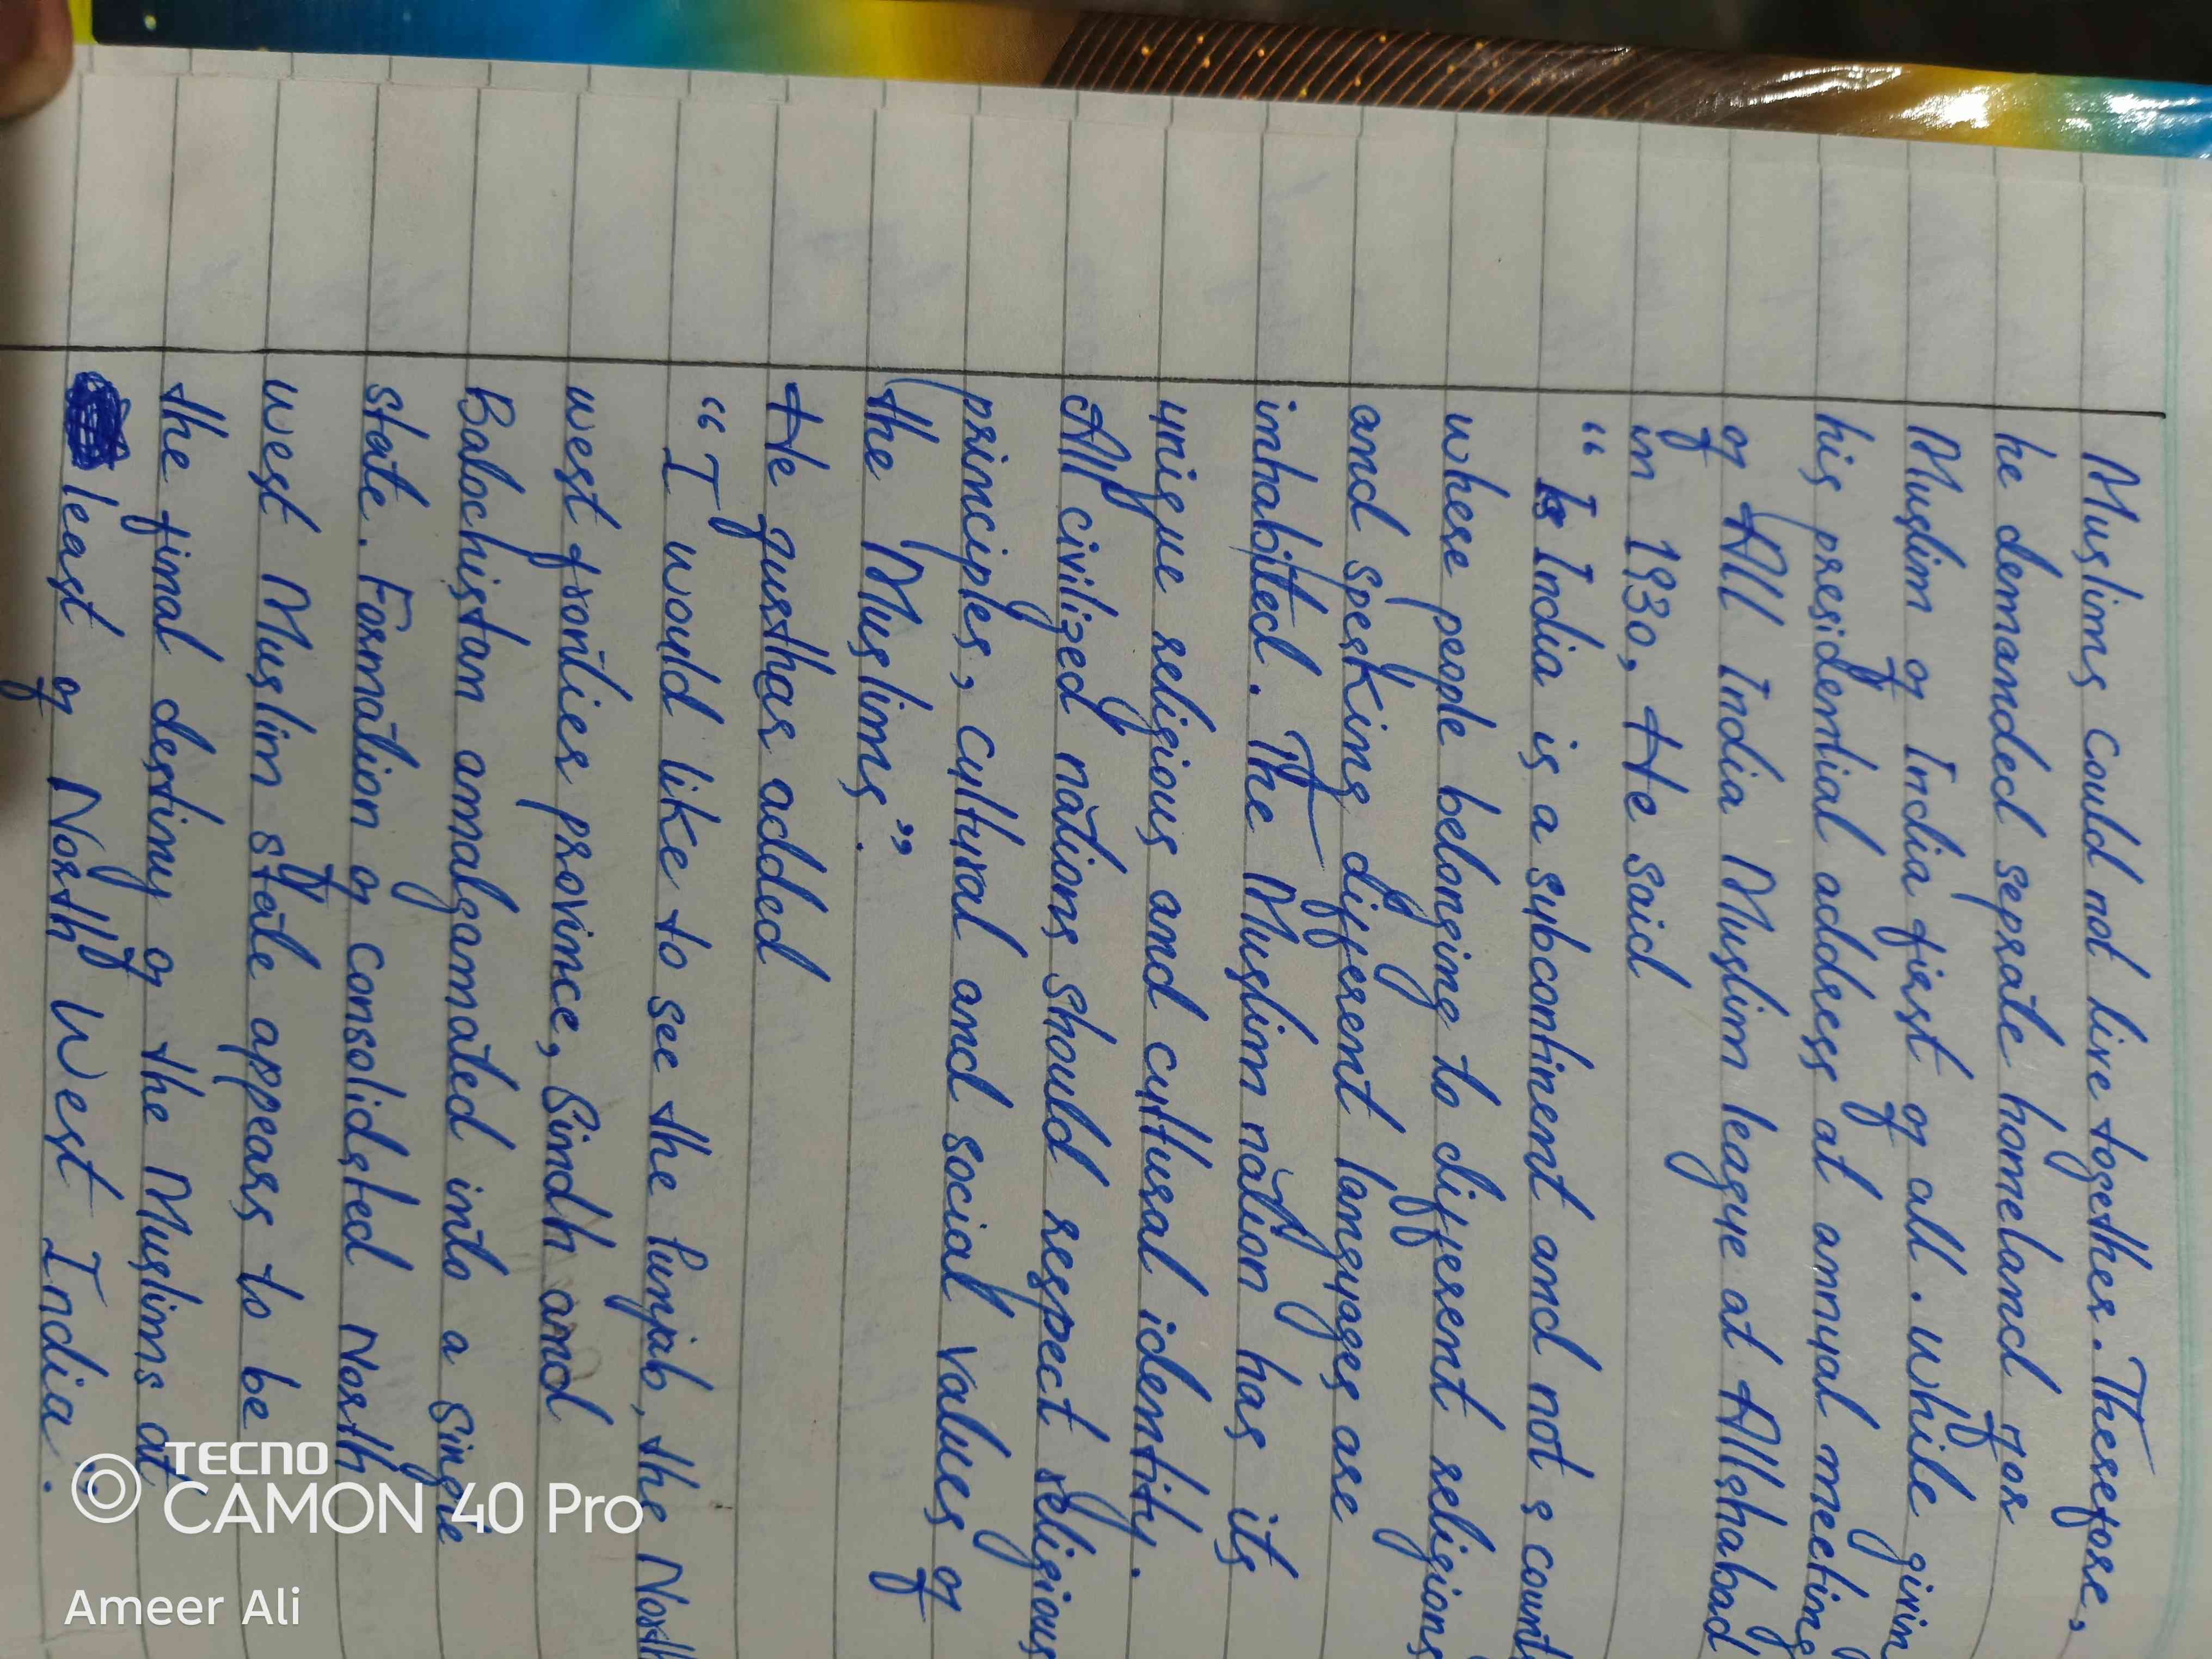 Muslims could not live together. Therefore,
he demanded seprate homeland for
Muslim of India first of all. While givin
his presidential address at annual meeting
of All India Muslim league at Allahabad
in 1930, He said
“ Is India is a subcontinent and not a count
where people belonging to different religions
and speaking different languages are
inhabited. The Muslim nation has its
unique religious and cultural identity.
All civilized nations should respect religious
principles, cultural and social values of
the Muslims”.
He furthar added
“I would like to see the Punjab, the North
west frontier province, Sindh and
Balochistan amalgamated into a single
state. Formation of consolidated North
west Muslim state appears to be
the final destiny of the Muslims at
least of North West India”.
TECNO
CAMON 40 Pro
Ameer Ali